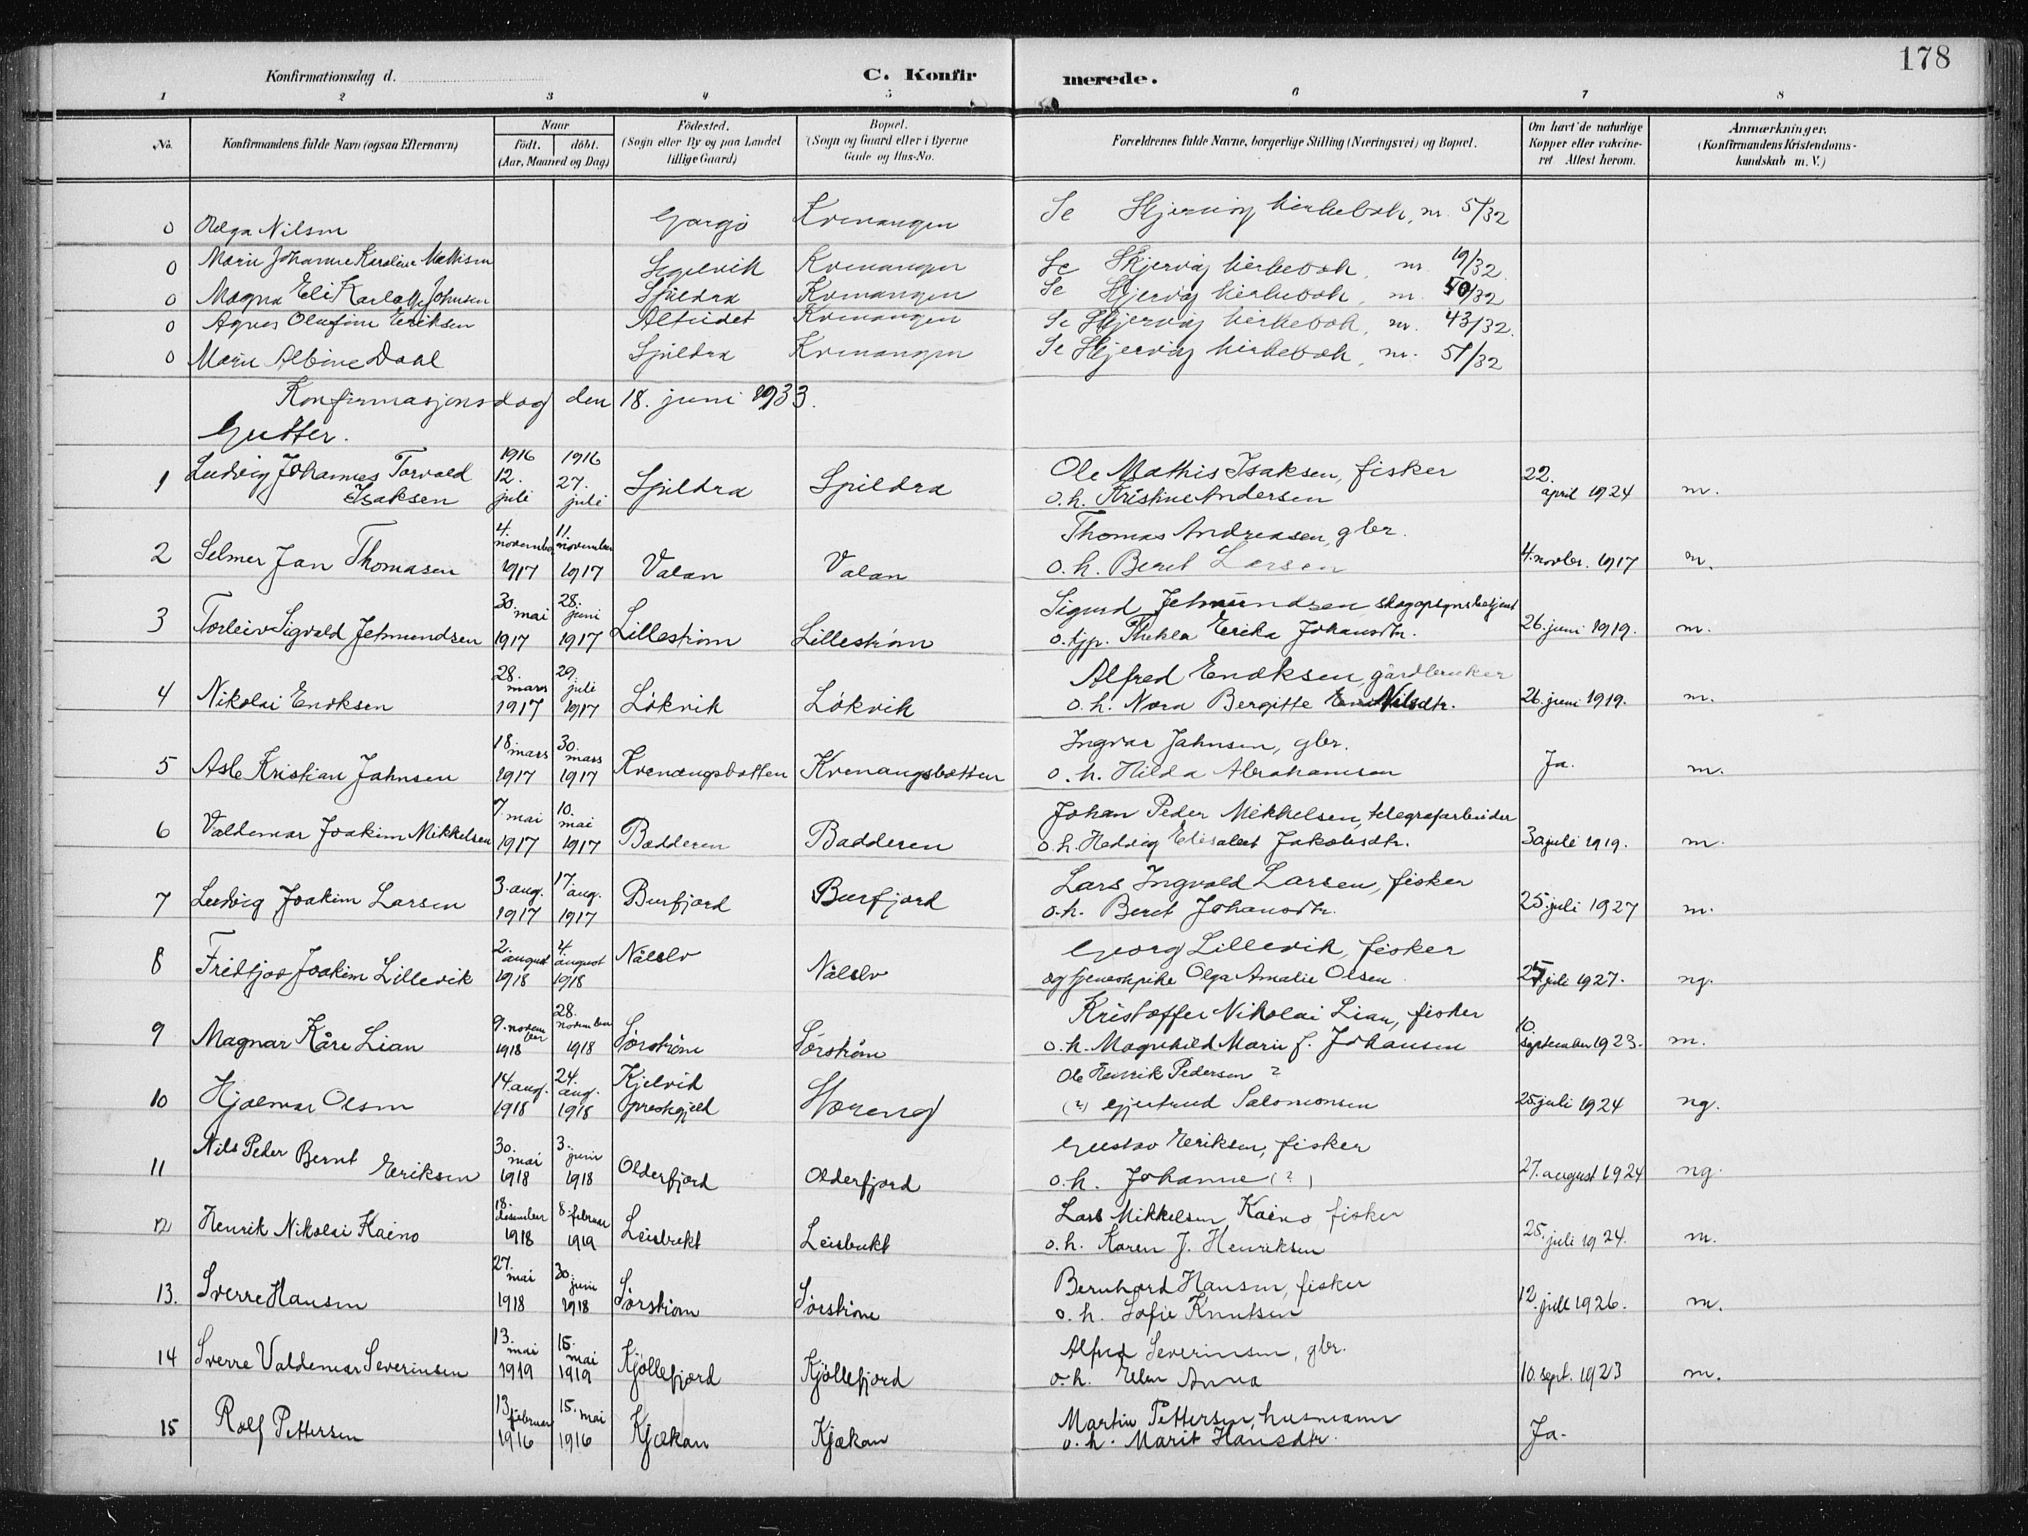 178
Konfirmationsdag d.
C. Konfirmerede.
1 2 3 4 5 6 7 8
No. Konfirmandens fulde Navn (ogsaa Efternavn) Naar født. døbt. (Aar, Maaned og Dag) Fødested. (Sogn eller By og paa Landet tillige Gaard) Bopæl. (Sogn og Gaard eller i Byerne Gade og Hus-No. Forældrenes fulde Navne, borgerlige Stilling (Næringsvei) og Bopæl. Om havt de naturlige Kopper eller vaksineret Attest herom. Anmærkninger. (Konfirmandens Kristendomskundskab m. V.)
0 Helga Nilsen Gargo Kvenangen Se Skjervøy kirkebok, nr. 5/32
0 Marie Johanne Karoline Mathisen Segelvik Kvenangen Se Skjervøy kirkebok, nr. 19/32
0 Magna Eli Karlotte Johnsen Spildra Kvenangen Se Skjervøy kirkebok, nr. 50/32
0 Agnes Olufine Eriksen Alteidet Kvenangen Se Skjervøy kirkebok, nr. 43/32.
0 Marie Albine Dahl Spildra Kvenangen Se Skjervøy kirkebok, nr. 51/32
Konfirmasjonsdag den 18. juni 1933.
Gutter.
1 Ludvig Johannes Torvald Isaksen 1916 12. juli 1916 27. juli Spildra Spildra Ole Mathis Isaksen, fisker
o. h. Kristine Andersen 22. april 1924 m.
2 Selmer Jan Thomasen 4. november 1917 11. november 1917 Valan Valan Thomas Andreasen, gbr.
o. h. Beret Larsen 4. novbr. 1917 m.
3 Torleiv Sigvald Jetmundsen 30. mai 1917 28. juni 1917 Lillestrøm Lillestrøm Sigurd Jetmundsen skogopsynsbetjent
o. tjp. Thekla Erika Johansdtr. 26. juni 1919. m.
4 Nikolai Enoksen 28. mars 1917 29. juli 1917 Løkvik Løkvik Alfred Enoksen, gårdbruker
o. h. Nora Bergitte Nilsdtr. 26. juni 1919. m.
5 Asle Kristian Jahnsen 18. mars 1917 30. mars 1917 Kvenangsbotten Kvenangsbotten Ingvar Jahnsen, gbr.
o. h. Hilda Abrahamsen Ja. m.
6 Valdemar Joakim Mikkelsen 7. mai 1917 10. mai 1917 Badderen Badderen Johan Peder Mikkelsen, telegrafarbeider
o. h. Hedvig Elisabet Jakobsdtr. 30 juli 1919. m.
7 Ludvig Joakim Larsen 3. aug. 1917 17 aug. 1917 Burfjord Burfjord Lars Ingvald Larsen, fisker
o. h. Beret Johansdtr. 25. juli 1927 m.
8 Fridtjov Joakim Lillevik 2. august 1918 4. august 1918 Nålslv Nålslv Georg Lillevik, fisker
og tjenestpike Olga Amalie Olsen 25 juli 1927. ng.
9 Magnar Kåre Lian 9. november 1918 28. november 1918 Sørstrøm Sørstrøm Kristoffer Nikolai Lian, fisker
o. h. Magnhild Marie f. Johansen 10. september 1923. m.
10 Hjalmar Olsen 14. aug. 1918 24. aug. 1918 Kjelvik prestegjeld Storeng Ole Henrik Pedersen ?
(?) Gjertrud Salomonsen 25. juli 1924 ng.
11 Nils Peder Bernt Eriksen 30. mai 1918 3. juni 1918 Olderfjord Olderfjord Gustav Eriksen, fisker
o. h. Johanne (?) 27. august 1924 ng.
12 Henrik Nikolai Kaino 18. desember 1918 8. februar 1919 Leisbukt Leisbukt Lars Mikkelsen Kaino fisker
o. h. Karen J. Henriksen 25. juli 1924. m.
13. Sverre Hansen 27. mai 1918 30. juni 1918 Sørstrøm Sørstrøm Bernhard Hansen, fisker
o. h. Sofie Knutsen 12. juli 1926. m.
14 Sverre Valdemar Severinsen 13. mai 1919 15. mai 1919 Kjøllefjord Kjøllefjord Alfred Severinsen, gbr.
o. h. Elen Anna 10. sept. 1923 m.
15 Rolf Pettersen 13. februar 1916 15. mai 1916 Kjækan Kjækan Martin Pettersen, husmann
o. h. Marit Hansdtr. Ja.